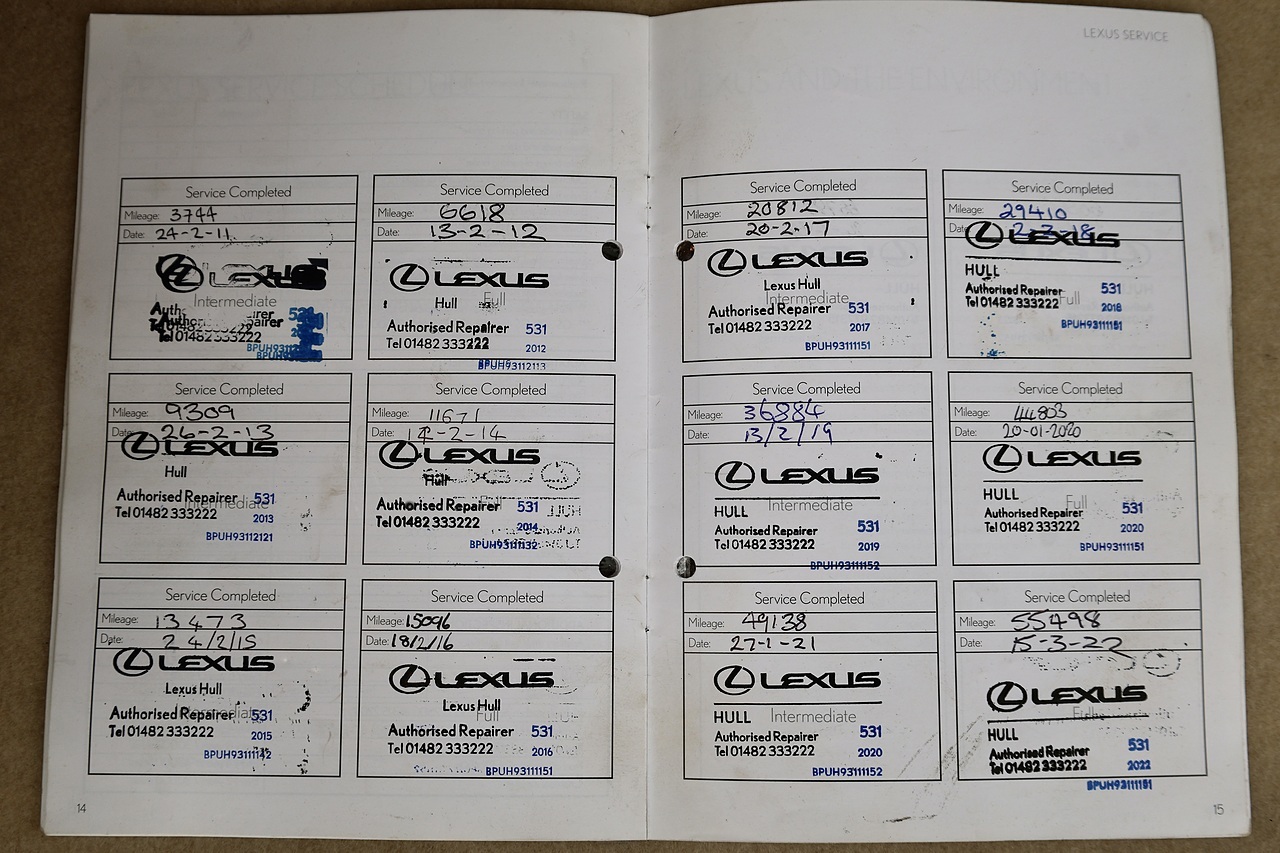 LEXUS SERVICE
Service Completed
Mileage: 3744
Date: 24-2-11
LEXUS
Intermediate
Authorised Repairer
Tel 01482 333222
Service Completed
Mileage: 6618
Date: 13-2-12
LEXUS
Hull Full
Authorised Repairer 531
Tel 01482 333222 2012
BPUH93112113
Service Completed
Mileage: 9309
Date: 26-2-13
LEXUS
Hull
Intermediate
Authorised Repairer 531
Tel 01482 333222 2013
BPUH93112121
Service Completed
Mileage: 11671
Date: -2-14
LEXUS
Hull
Full
Authorised Repairer 531
Tel 01482 333222 2014
Service Completed
Mileage: 13473
Date: 24/2/15
LEXUS
Lexus Hull
Intermediate
Authorised Repairer 531
Tel 01482 333222 2015
BPUH93111142
Service Completed
Mileage: 15096
Date: 18/2/16
LEXUS
Lexus Hull
Full
Authorised Repairer 531
Tel 01482 333222 2016
BPUH93111151
14
Service Completed
Mileage: 20812
Date: 20-2-17
LEXUS
Lexus Hull
Intermediate
Authorised Repairer 531
Tel 01482 333222 2017
BPUH93111151
Service Completed
Mileage: 29410
Date: 2-3-18
LEXUS
HULL
Authorised Repairer 531
Full
Tel 01482 333222 2018
BPUH93111151
Service Completed
Mileage: 36884
Date: 13/2/19
LEXUS
Intermediate
HULL
Authorised Repairer 531
Tel 01482 333222 2019
BPUH93111152
Service Completed
Mileage: 44803
Date: 20-01-2020
LEXUS
HULL
Full
Authorised Repairer 531
Tel 01482 333222 2020
BPUH93111151
Service Completed
Mileage: 49138
Date: 27-1-21
LEXUS
HULL Intermediate
Authorised Repairer 531
Tel 01482 333222 2020
BPUH93111152
Service Completed
Mileage: 55498
Date: 15-3-22
LEXUS
HULL
Authorised Repairer 531
Tel 01482 333222 2022
BPUH93111151
15